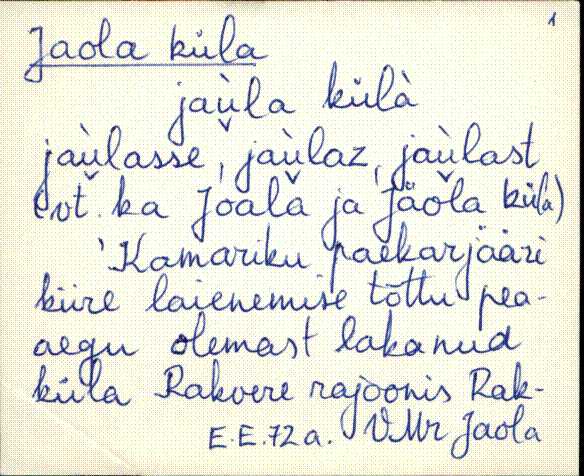 1
Jaola küla
jaùla külà
jaùlasse, jaùlaz, jaùlast
(vt. ka Joala ja Jäola küla)
'Kamariku paekarjääri
kiire laienemise tõttu pea-
aegu olemast lakanud
küla Rakvere rajoonis Rak-
E.E.72a. VMr Jaola